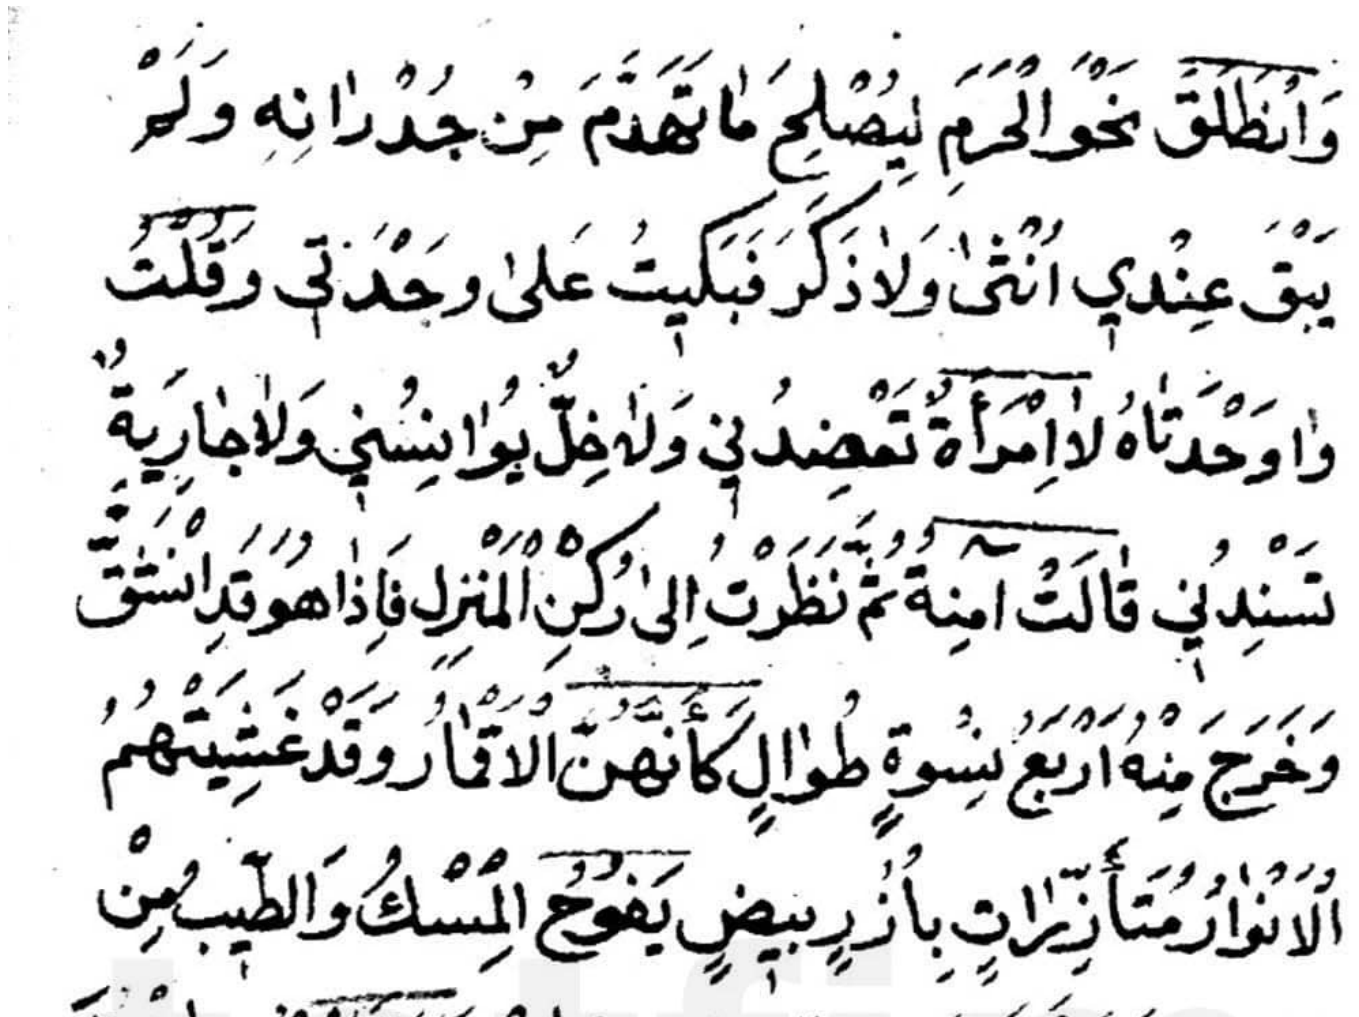 وَانْطَلَقَ نَحْوَالْحَرَمِ لِيُصْلِحَ مَاتَهَدَّمَ مِنْ جُدْرَانِهِ وَلَمْ
يَبْقَ عِنْدِي اُنْثٰى وَلَاذَكَرَ فَبَكَيْتُ عَلىٰ وَحْدَتِي وَقُلْتُ
وٰاوَحْدَتٰاهُ لَااِمْرَأَةٌ تَعْضِدُنِي وَلٰا خِلٌّ يُوٰانِسُنِي وَلٰاجٰارِيَةٌ
تَسْنِدُنِي قٰالَتْ اٰمِنَةُ ثُمَّ نَظَرْتُ اِلىٰ رُكْنِ الْمَنْزِلِ فَاِذٰاهُوَقَدِانْشَقَّ
وَخَرَجَ مِنْهُ اَرْبَعُ نِسْوَةٍ طُوٰالٍ كَأَنَّهُنَّ الْاَقْمٰارُ وَقَدْغَشِيَتْهُمُ
الْاَنْوٰارُ مُتَأَزِّرٰاتٍ بِاُزُرٍ بِيضٍ يَفُوحُ الْمِسْكُ وَالطِّيبُ مِنْ